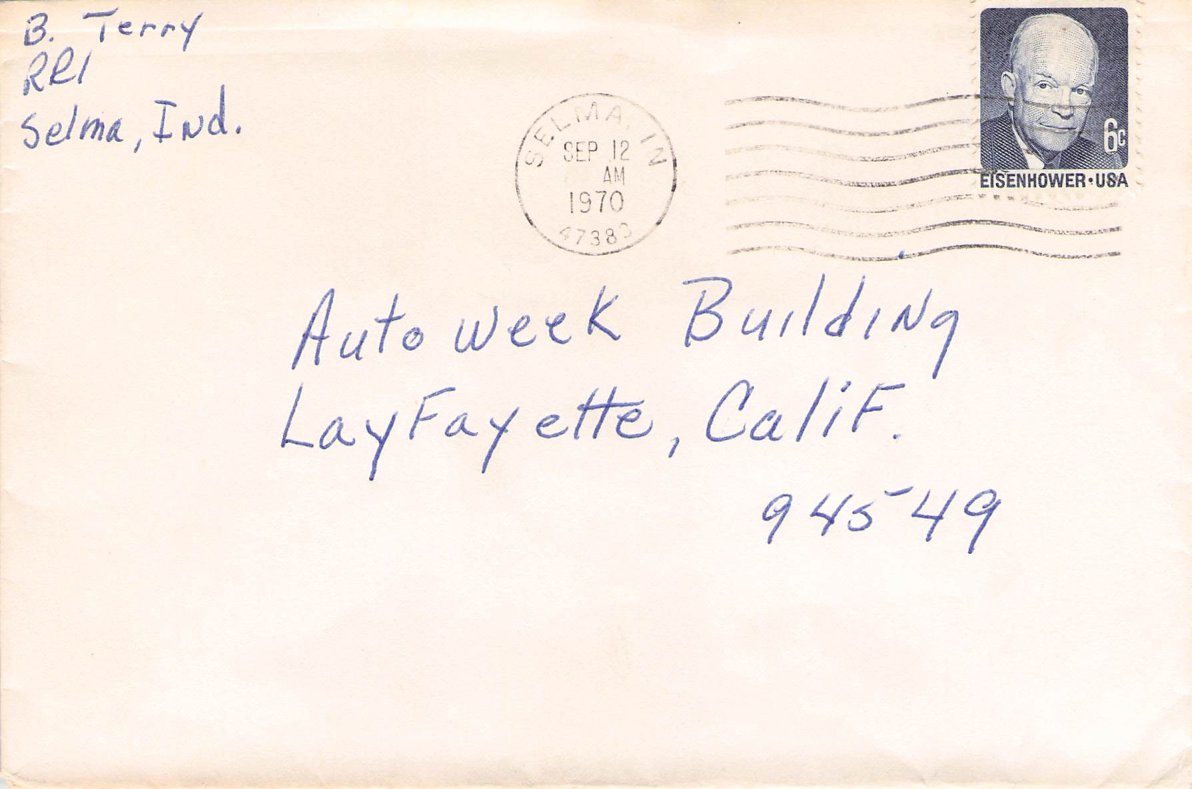 B. Terry
RR1
Selma, Ind.
SELMA, IN
SEP 12
AM
1970
47383
6c
EISENHOWER·USA
Autoweek Building
LayFayette, Calif.
94549